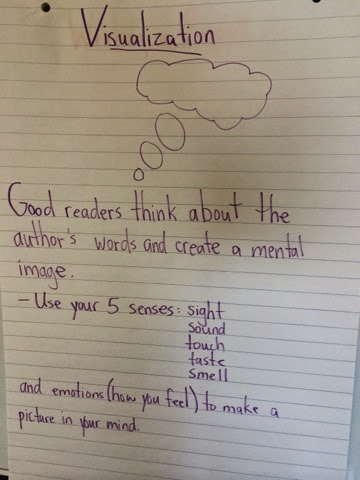 Visualization
Good readers think about the
author's words and create a mental
image.
- Use your 5 senses: sight
sound
touch
taste
smell
and emotions (how you feel) to make a
picture in your mind.